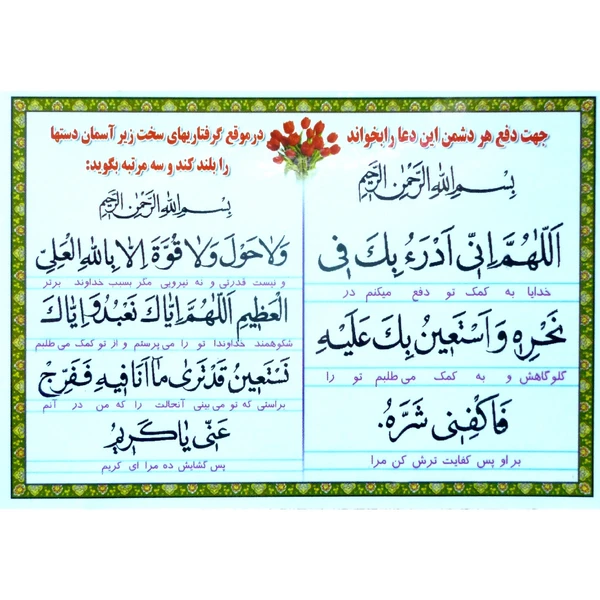 جهت دفع هر دشمن این دعا رابخواند
بِسْمِ اللهِ الرَّحْمٰنِ الرَّحِيْمِ
اَللّٰهُمَّ اِنّى اَدْرَءُ بِكَ فى
خدایا به کمک تو دفع میکنم در
نَحْرِهٖ وَ اَسْتَعينُ بِكَ عَلَيْهِ
گلوگاهش و به کمک می طلبم تو را
فَاكْفِنى شَرَّهُ.
بر او پس کفایت ترش کن مرا
درموقع گرفتاریهای سخت زیر آسمان دستها
را بلند کند و سه مرتبه بگوید:
بِسْمِ اللهِ الرَّحْمٰنِ الرَّحِيْمِ
وَلاحَوْلَ وَلا قُوَّةَ اِلّا بِاللهِ الْعَلِىِّ
و نیست قدرتی و نه نیرویی مگر بسبب خداوند برتر
الْعَظيمِ اَللّٰهُمَّ اِيّاكَ نَعْبُدُ وَ اِيّاكَ
شکوهمند خداوندا تو را می پرستم و از تو کمک می طلبم
نَسْتَعينُ قَدْ تَرىٰ ما اَنَا فيهِ فَفَرِّجْ
براستی که تو می بینی آنحالت را که من در آنم
عَنّى يا كَريمُ
پس گشایش ده مرا ای کریم